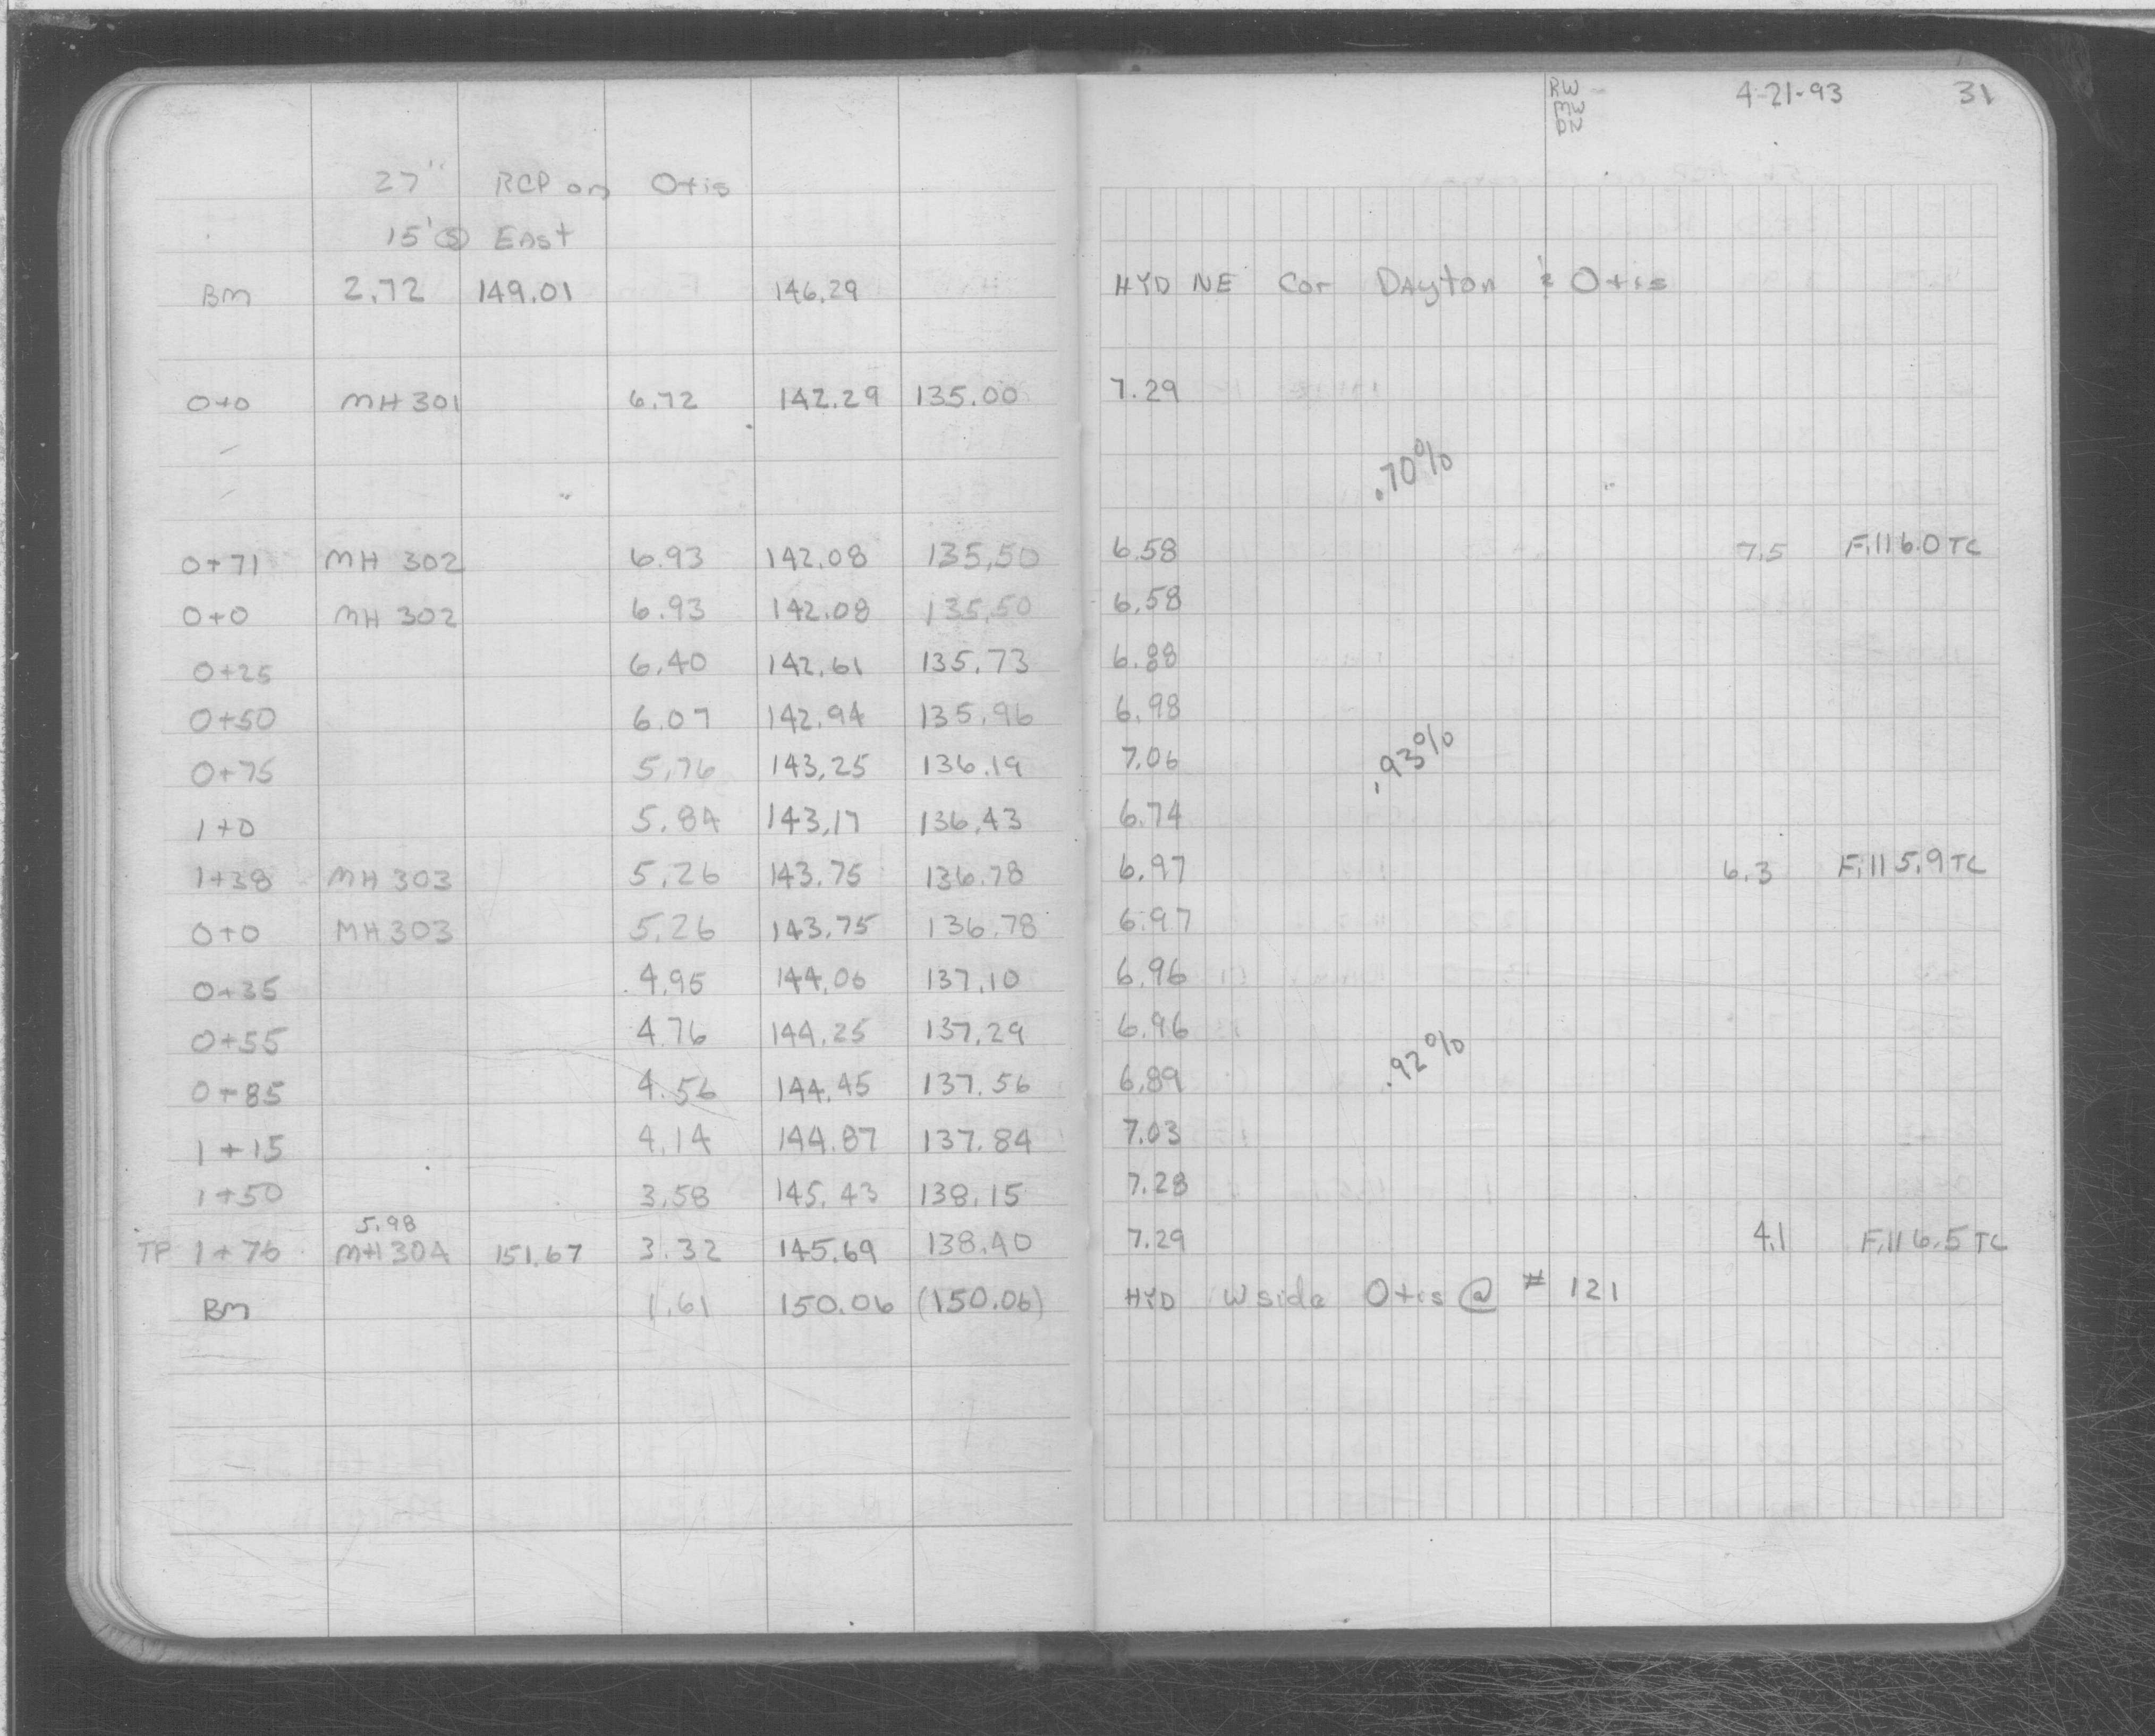 RW 4-21-93 31
MW
DN
27" RCP on Otis
15' Ⓢ East
BM 2.72 149.01 146.29 HYD NE Cor Dayton & Otis
0+0 MH 301 6.72 142.29 135.00 7.29
.70%
0+71 MH 302 6.93 142.08 135.50 6.58 7.5 Fill 6.0 TC
0+0 MH 302 6.93 142.08 135.50 6.58
0+25 6.40 142.61 135.73 6.88
0+50 6.07 142.94 135.96 6.98
0+75 5.76 143.25 136.19 7.06 .93%
1+0 5.84 143.17 136.43 6.74
1+38 MH 303 5.26 143.75 136.78 6.97 6.3 Fill 5.9 TC
0+0 MH 303 5.26 143.75 136.78 6.97
0+35 4.95 144.06 137.10 6.96
0+55 4.76 144.25 137.29 6.96
0+85 4.56 144.45 137.56 6.89 .92%
1+15 4.14 144.87 137.84 7.03
1+50 3.58 145.43 138.15 7.28
5.98
TP 1+76 MH 304 151.67 3.32 145.69 138.40 7.29 4.1 Fill 6.5 TC
BM 1.61 150.06 (150.06) HYD W side Otis @ # 121